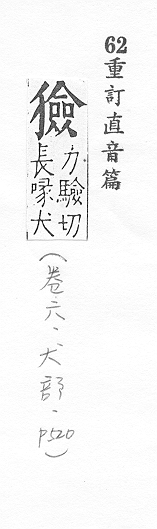 62重訂直音篇
獫
力驗切
長喙犬
（卷六、犬部．P520）